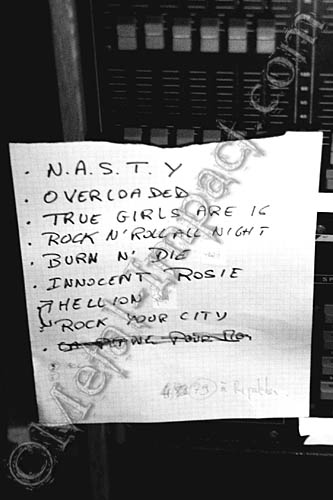 · N.A.S.T.Y
· OVERLOADED
· TRUE GIRLS ARE 16
· ROCK N'ROLL ALL NIGHT
· BURN N' DIE
· INNOCENT ROSIE
HELLION
ROCK YOUR CITY
©Metal-Impact.com